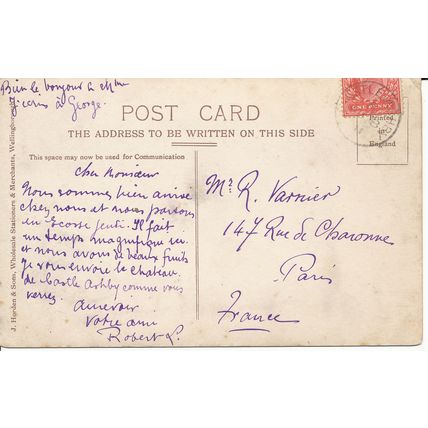 Bien le bonjour à Mme
J'écris à George.
POST CARD
THE ADDRESS TO BE WRITTEN ON THIS SIDE
This space may now be used for Communication
Printed
in
England
ONE PENNY
cher Monsieur
Nous sommes bien arrivé
chez nous et nous partons
en Ecosse Jeudi. Il fait
un temps magnifique
et nous avons de beaux fruits
je vous envoie le chateau
de Castle Ashby comme vous
verrez.
aurevoir
Votre ami
Robert L.
Mr. R. Varnier
147 Rue de Charonne
Paris
France
J. Harden & Sons, Wholesale Stationers & Merchants,